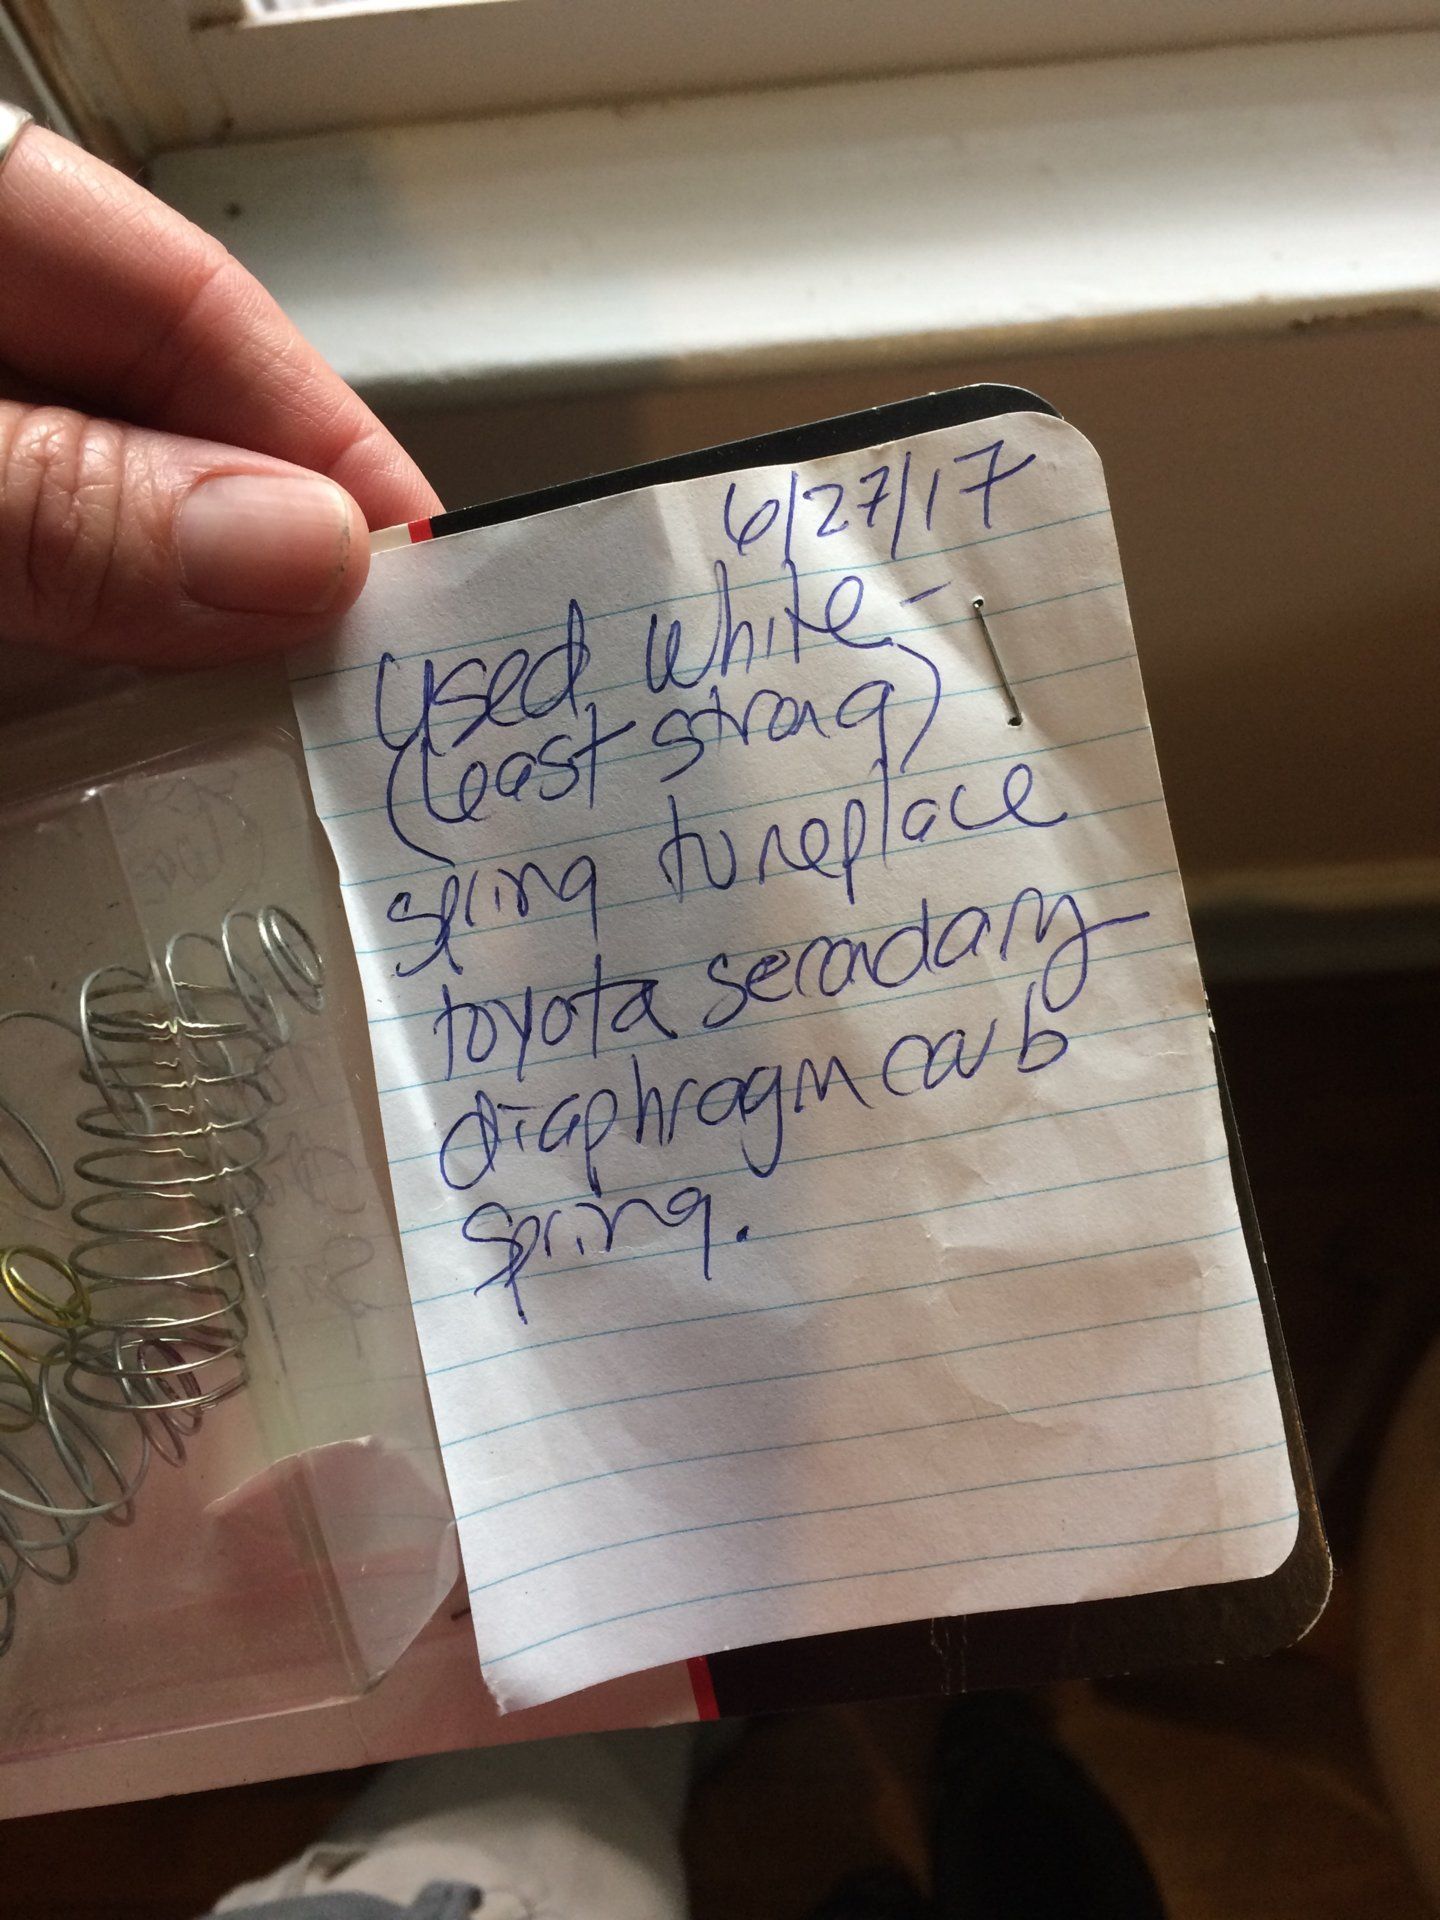 6/27/17
used white -
(least strong)
spring to replace
toyota secondary
diaphragm carb
spring.